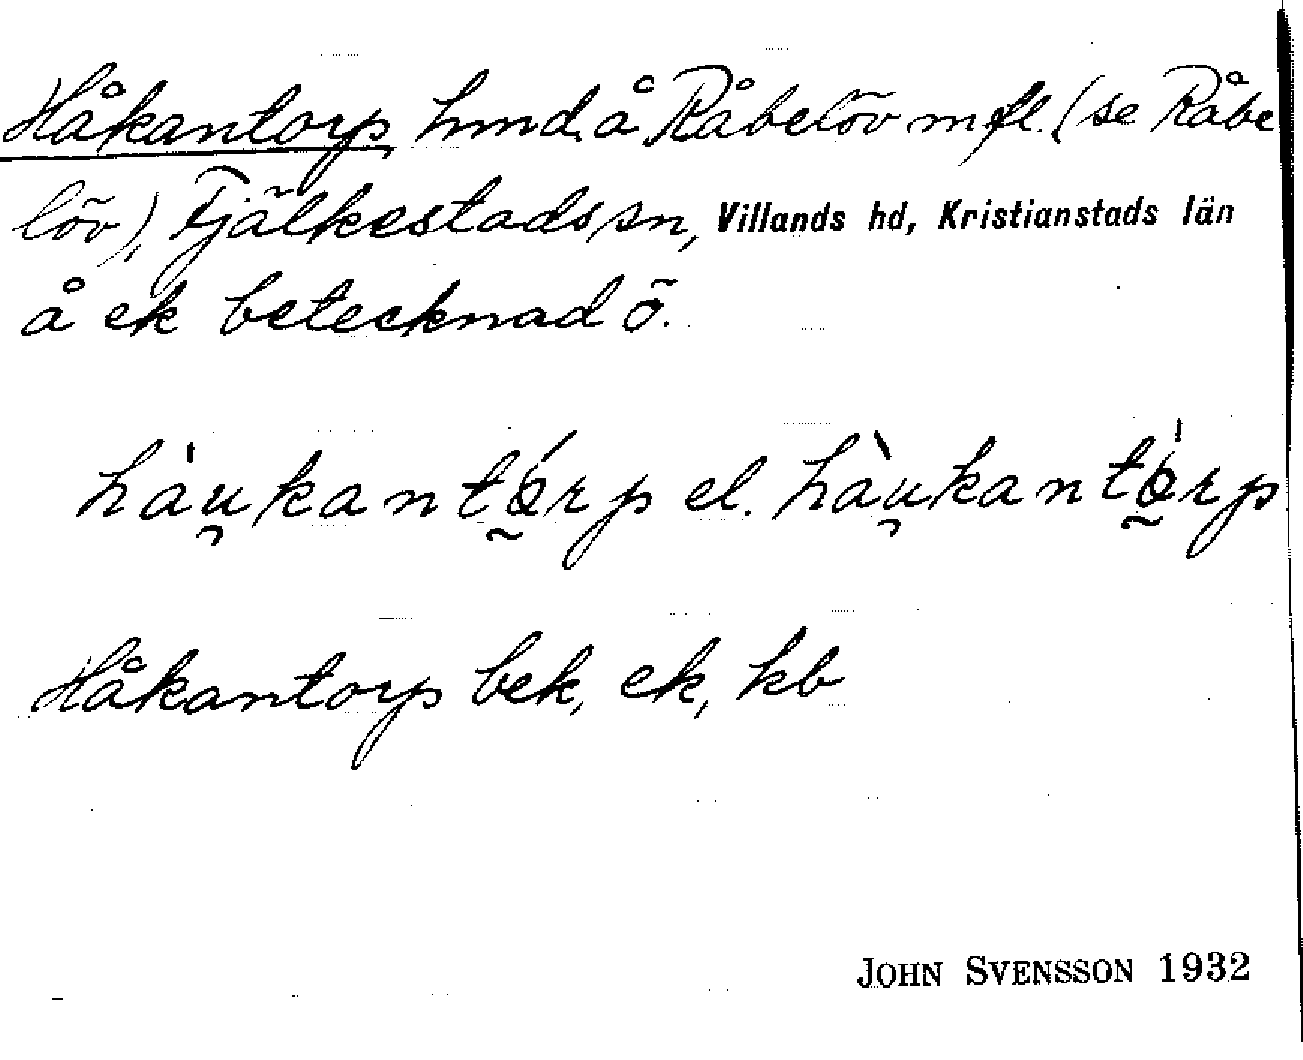 Håkantorp hmd å Råbelöv m fl. (se Råbe
löv), Fjälkestads sn, Villands hd, Kristianstads län
å ek betecknad ö.
hàu̯kantǿrp el. hàu̯kantǿrp
Håkantorp bek, ek, kb
JOHN SVENSSON 1932